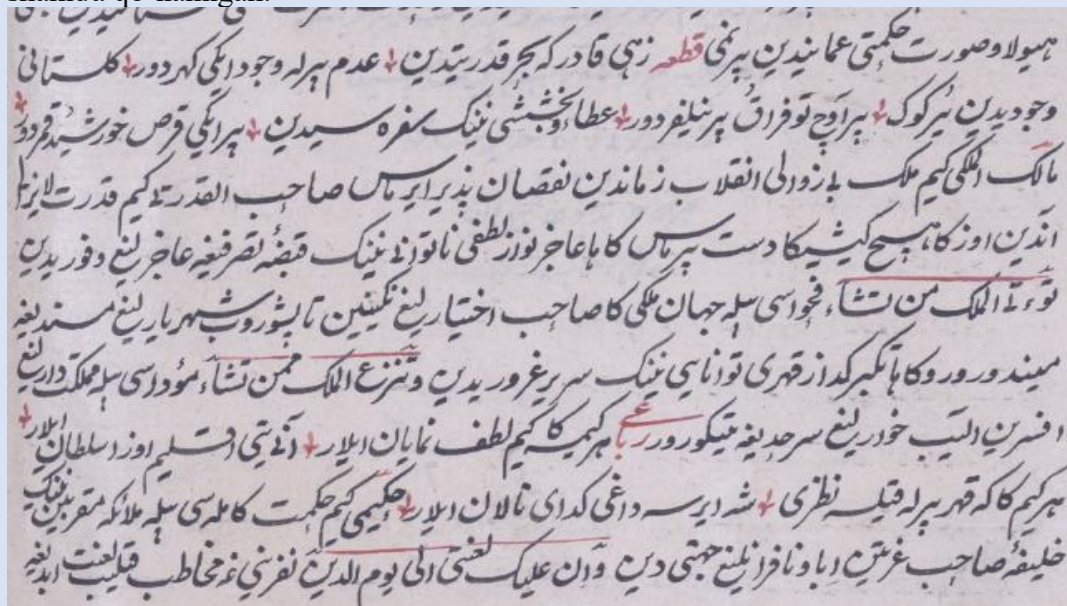 هیولا و صورت حکمتی عمانیدین بیر نمی قطعه زهی قادر که بحر قدرتیدین عدم بیرله وجود ایکی کهردور کلستانی
وجودیدین بیر کوک بیر اوچ توفراق بیر نیلفردور عطاء و بخششی نینک سفره سیدین بیر ایکی قرص خورشید قمردور
مالک الملکی کیم ملک بی زوالی انقلاب زماندین نقصان پذیر ایرماس صاحب القدرتی کیم قدرت لایزا
اندین اوزکا هیچ کیشیکا دست بیرماس کاها عاجز نواز لطفی ناتوانی نینک قبضهٔ تصرفیغه عاجزلیغ وفوریدین
تؤتی الملک من تشآء فحواسی بیله جهان ملکی کا صاحب اختیارلیغ نکینین تابشوروب شهریارلیغ مسندیغه
میندورورو کاها تکبر کداز قهری توانایی نینک سریر غروریدین وتنزع الملک ممن تشآء مؤداسی بیله مملکت دارلیغ
افسرین الیب خودرلیغ سرحدیغه ییتکورور رباعی هر کیمسه کا کیم لطف نمایان ایلار آنی یتی اقلیم اوزا سلطان ایلار
هر کیم کا که قهر بیرله قیلسه نظری شه ایرسه داغی کدای نالان ایلار حکیمی کیم حکمت کامله سی بیله ملائکه مقربین نینک
خلیفهٔ صاحب عزتین ابا و نافرمانلیغ جهتی دین وان علیک لعنتی الی یوم الدین نفرینی غه مخاطب قیلیب لعنت ابدیغه